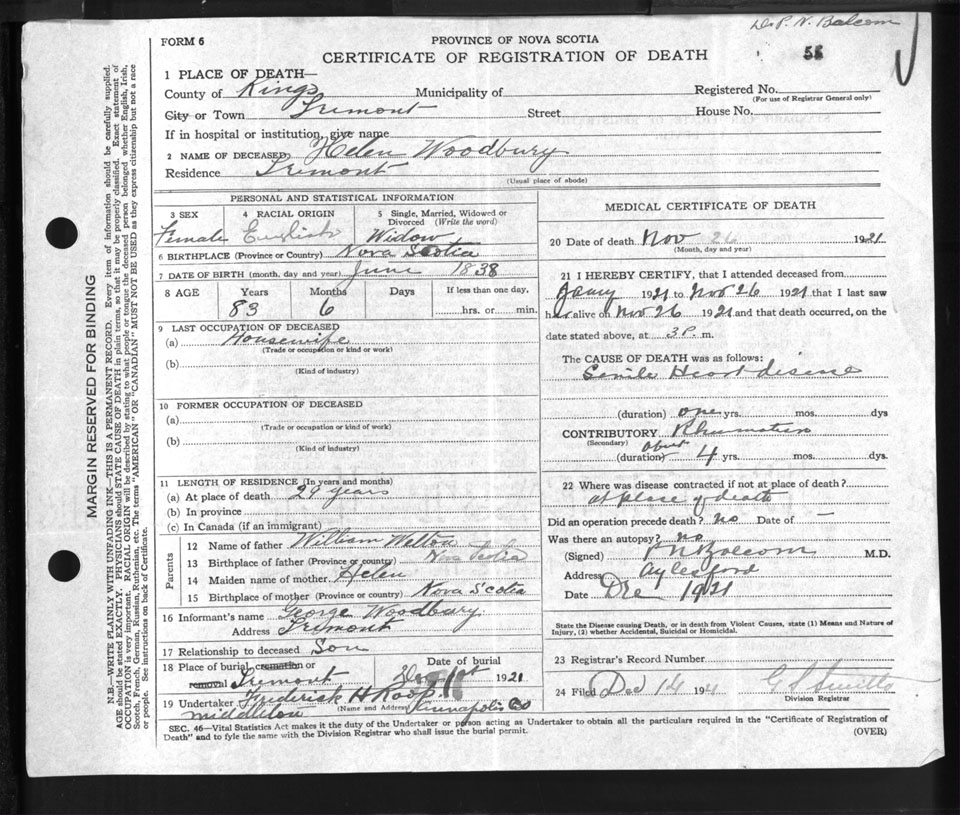 Dr. P. N. Balcom
FORM 6
PROVINCE OF NOVA SCOTIA
CERTIFICATE OF REGISTRATION OF DEATH
55
1 PLACE OF DEATH—
County of Kings Municipality of Registered No.
(For use of Registrar General only)
City or Town Tremont Street House No.
If in hospital or institution, give name
2 NAME OF DECEASED Helen Woodbury
Residence Tremont
(Usual place of abode)
PERSONAL AND STATISTICAL INFORMATION
3 SEX 4 RACIAL ORIGIN 5 Single, Married, Widowed or Divorced (Write the word)
Female English Widow
6 BIRTHPLACE (Province or Country) Nova Scotia
7 DATE OF BIRTH (month, day and year) June 1838
8 AGE Years Months Days If less than one day,
83 6 hrs. or min.
9 LAST OCCUPATION OF DECEASED
(a) Housewife
(Trade or occupation or kind or work)
(b)
(Kind of industry)
10 FORMER OCCUPATION OF DECEASED
(a)
(Trade or occupation or kind of work)
(b)
(Kind of industry)
11 LENGTH OF RESIDENCE (In years and months)
(a) At place of death 29 years
(b) In province
(c) In Canada (if an immigrant)
Parents
12 Name of father William Welton
13 Birthplace of father (Province or country) Nova Scotia
14 Maiden name of mother Helen
15 Birthplace of mother (Province or country) Nova Scotia
16 Informant's name George Woodbury
Address Tremont
17 Relationship to deceased Son
18 Place of burial cremation or removal Tremont
Date of burial 1921
19 Undertaker Frederick H Roop
(Name and Address) Middleton Annapolis Co
MEDICAL CERTIFICATE OF DEATH
20 Date of death Nov 26 1921
(Month, day and year)
21 I HEREBY CERTIFY, that I attended deceased from
1921 to Nov 26 1921 that I last saw
her alive on Nov 26 1921 and that death occurred, on the
date stated above, at 3 P. m.
The CAUSE OF DEATH was as follows:
Senile Heart disease
(duration) one yrs. mos. dys
CONTRIBUTORY Rhumatism
(Secondary)
(duration) about 4 yrs. mos. dys.
22 Where was disease contracted if not at place of death?
at place of death
Did an operation precede death? no Date of —
Was there an autopsy? no
(Signed) P N Balcom M.D.
Address Aylesford
Date Dec 1921
State the Disease causing Death, or in death from Violent Causes, state (1) Means and Nature of
Injury, (2) whether Accidental, Suicidal or Homicidal.
23 Registrar's Record Number
24 Filed Dec 14 192
Division Registrar
SEC. 46—Vital Statistics Act makes it the duty of the Undertaker or person acting as Undertaker to obtain all the particulars required in the "Certificate of Registration of
Death" and to fyle the same with the Division Registrar who shall issue the burial permit.
(OVER)
MARGIN RESERVED FOR BINDING
N.B.—WRITE PLAINLY WITH UNFADING INK—THIS IS A PERMANENT RECORD. Every item of information should be carefully supplied.
AGE should be stated EXACTLY. PHYSICIANS should STATE CAUSE OF DEATH in plain terms, so that it may be properly classified. Exact statement of
OCCUPATION is very important. RACIAL ORIGIN will be described by stating to what people or tongue the deceased person belonged whether English, Irish,
Scotch, French, German, Russian, Ruthenian, etc. The terms "AMERICAN" OR "CANADIAN" MUST NOT BE USED as they express citizenship but not a race
or people. See instructions on back of Certificate.